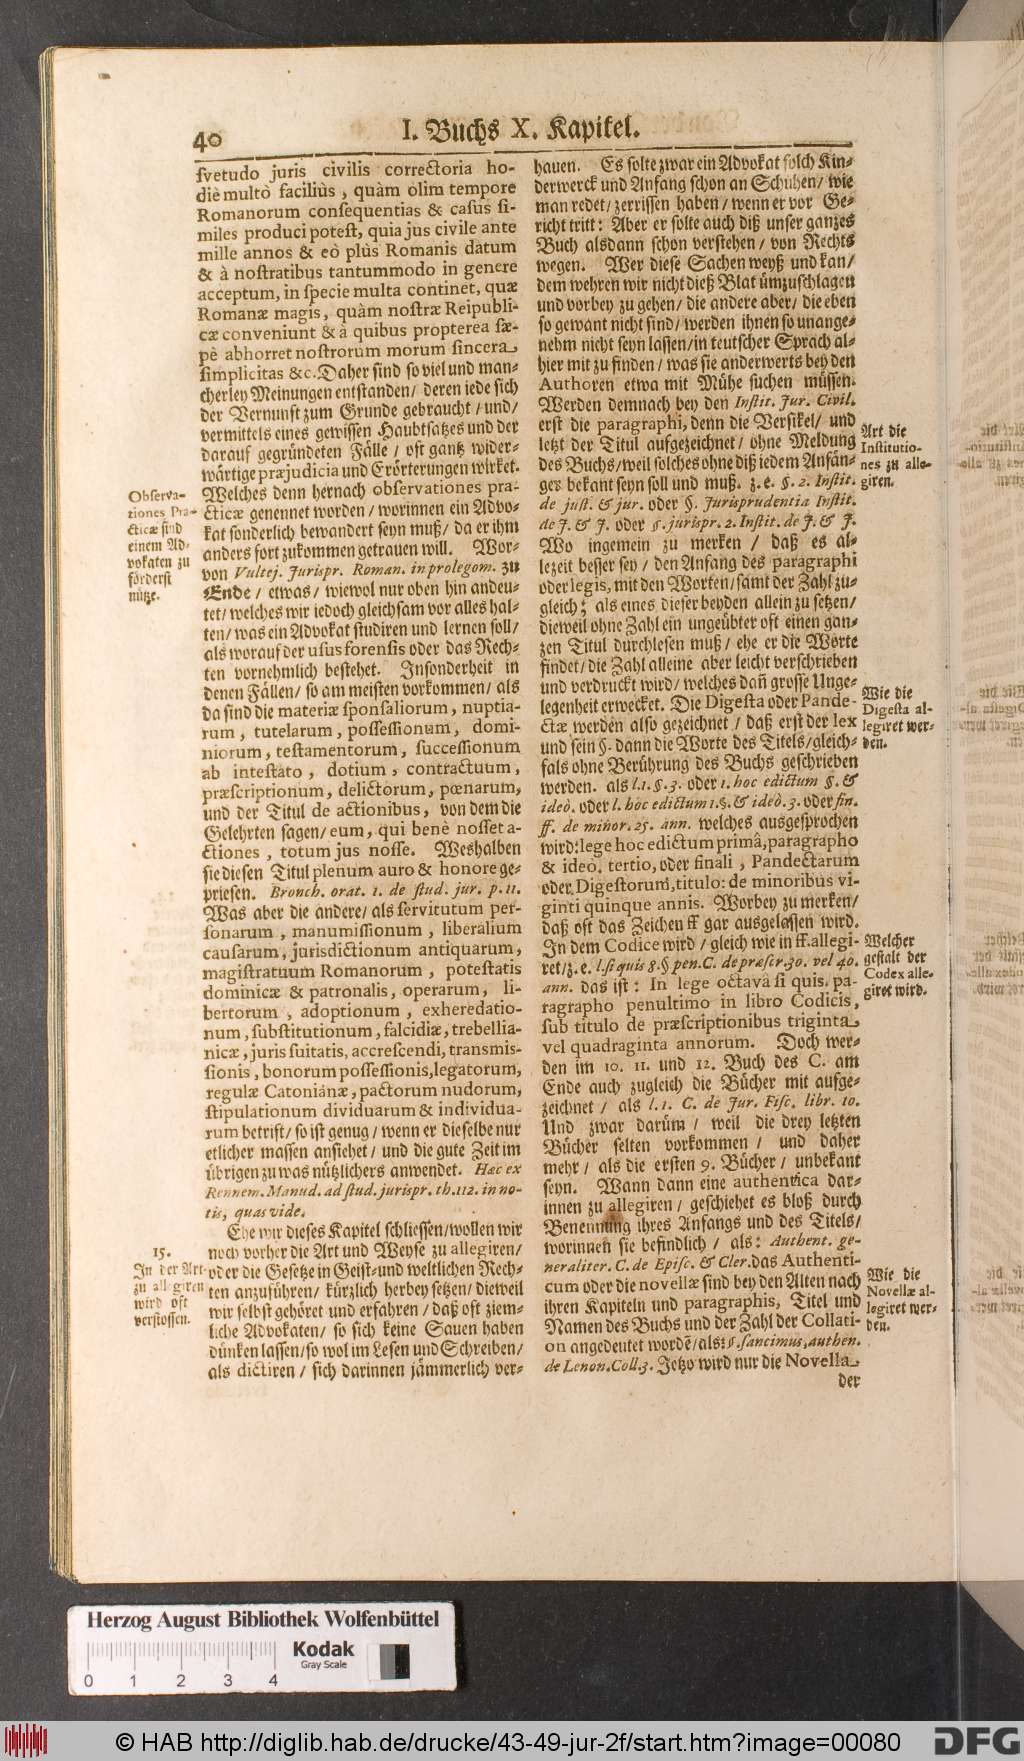 40
I. Buchs X. Kapitel.
svetudo juris civilis correctoria ho-
diè multò faciliùs, quàm olim tempore
Romanorum consequentias & casus si-
miles produci potest, quia jus civile ante
mille annos & eò plùs Romanis datum
& à nostratibus tantummodo in genere
acceptum, in specie multa continet, quæ
Romanæ magis, quàm nostræ Reipubli-
cæ conveniunt & à quibus propterea sæ-
pè abhorret nostrorum morum sincera
simplicitas &c. Daher sind so viel und man-
cherley Meinungen entstanden/ deren iede sich
der Vernunft zum Grunde gebraucht/ und/
vermittels eines gewissen Haubtsatzes und der
darauf gegründeten Fälle/ oft gantz wider-
wärtige præjudicia und Erörterungen wircket.
Welches denn hernach observationes pra-
cticæ genennet worden/ worinnen ein Advo-
kat sonderlich bewandert seyn muß/ da er ihm
anders fort zukommen getrauen will. Wor-
von Vultej. Jurispr. Roman. in prolegom. zu
Ende/ etwas/ wiewol nur oben hin andeu-
tet/ welches wir iedoch gleichsam vor alles hal-
ten/ was ein Advokat studiren und lernen soll/
als worauf der usus forensis oder das Rech-
ten vornehmlich bestehet. Insonderheit in
denen Fällen/ so am meisten vorkommen/ als
da sind die materiæ sponsaliorum, nuptia-
rum, tutelarum, possessionum, domi-
niorum, testamentorum, successionum
ab intestato, dotium, contractuum,
præscriptionum, delictorum, pœnarum,
und der Titul de actionibus, von dem die
Gelehrten sagen/ eum, qui benè nosset a-
ctiones, totum jus nosse. Weshalben
sie diesen Titul plenum auro & honore ge-
priesen. Bronch. orat. 1. de stud. jur. p. 11.
Was aber die andere/ als servitutum per-
sonarum, manumissionum, liberalium
causarum, jurisdictionum antiquarum,
magistratuum Romanorum, potestatis
dominicæ & patronalis, operarum, li-
bertorum, adoptionum, exheredatio-
num, substitutionum, falcidiæ, trebellia-
nicæ, juris suitatis, accrescendi, transmis-
sionis, bonorum possessionis, legatorum,
regulæ Catonianæ, pactorum nudorum,
stipulationum dividuarum & individua-
rum betrift/ so ist genug/ wenn er dieselbe nur
etlicher massen ansiehet/ und die gute Zeit im
übrigen zu was nützlichers anwendet. Hæc ex
Rennem. Manud. ad stud. jurispr. th. 112. in no-
tis, quas vide.
Ehe wir dieses Kapitel schliessen/ wollen wir
noch vorher die Art und Weyse zu allegiren/
oder die Gesetze in Geist- und weltlichen Rech-
ten anzuführen/ kürzlich herbey setzen/ dieweil
wir selbst gehöret und erfahren/ daß oft ziem-
liche Advokaten/ so sich keine Sauen haben
dünken lassen/ so wol im Lesen und Schreiben/
als dictiren/ sich darinnen jämmerlich ver-
Observa-
tiones Pra-
cticæ sind
einem Ad-
vokaten zu
förderst
nütze.
15.
In der Art
zu allegiren
wird oft
verstossen.
hauen. Es solte zwar ein Advokat solch Kin-
derwerck und Anfang schon an Schuhen/ wie
man redet/ zerrissen haben/ wenn er vor Ge-
richt tritt: Aber er solte auch diß unser ganzes
Buch alsdann schon verstehen/ von Rechts
wegen. Wer diese Sachen weyß und kan/
dem wehren wir nicht dieß Blat ümzuschlagen
und vorbey zu gehen/ die andere aber/ die eben
so gewant nicht sind/ werden ihnen so unange-
nehm nicht seyn lassen/ in teutscher Sprach al-
hier mit zu finden/ was sie anderwerts bey den
Authoren etwa mit Mühe suchen müssen.
Werden demnach bey den Instit. Jur. Civil.
erst die paragraphi, denn die Versikel/ und
letzt der Titul aufgezeichnet/ ohne Meldung
des Buchs/ weil solches ohne diß iedem Anfän-
ger bekant seyn soll und muß. z. e. §. 2. Instit.
de just. & jur. oder §. Jurisprudentia Instit.
de J. & J. oder §. jurispr. 2. Instit. de J. & J.
Wo ingemein zu merken/ daß es al-
lezeit besser sey/ den Anfang des paragraphi
oder legis, mit den Worten/ samt der Zahl zu-
gleich; als eines dieser beyden allein zu setzen/
dieweil ohne Zahl ein ungeübter oft einen gan-
zen Titul durchlesen muß/ ehe er die Worte
findet/ die Zahl alleine aber leicht verschrieben
und verdruckt wird/ welches dañ grosse Unge-
legenheit erwecket. Die Digesta oder Pande-
ctæ werden also gezeichnet/ daß erst der lex
und sein §. dann die Worte des Titels/ gleich-
fals ohne Berührung des Buchs geschrieben
werden. als l. 1. §. 3. oder 1. hoc edictum §. &
ideò. oder l. hoc edictum 1. §. & ideò. 3. oder fin.
ff. de minor. 25. ann. welches ausgesprochen
wird: lege hoc edictum primâ, paragrapho
& ideo. tertio, oder finali, Pandectarum
oder Digestorum, titulo: de minoribus vi-
ginti quinque annis. Worbey zu merken/
daß oft das Zeichen ff gar ausgelassen wird.
In dem Codice wird/ gleich wie in ff. allegi-
ret/ z. e. l. si quis 8. § pen. C. de præscr. 30. vel 40.
ann. das ist: In lege octavâ si quis. pa-
ragrapho penultimo in libro Codicis,
sub titulo de præscriptionibus triginta
vel quadraginta annorum. Doch wer-
den im 10. 11. und 12. Buch des C. am
Ende auch zugleich die Bücher mit aufge-
zeichnet/ als l. 1. C. de Jur. Fisc. libr. 10.
Und zwar darüm/ weil die drey letzten
Bücher selten vorkommen/ und daher
mehr/ als die ersten 9. Bücher/ unbekant
seyn. Wann dann eine authentica dar-
innen zu allegiren/ geschiehet es bloß durch
Benennung ihres Anfangs und des Titels/
worinnen sie befindlich/ als: Authent. ge-
neraliter. C. de Episc. & Cler. das Authenti-
cum oder die novellæ sind bey den Alten nach
ihren Kapiteln und paragraphis, Titel und
Namen des Buchs und der Zahl der Collati-
on angedeutet wordẽ/ als: §. sancimus, authen.
de Lenon. Coll. 3. Jetzo wird nur die Novella
der
Art die
Institutio-
nes zu alle-
giren.
Wie die
Digesta al-
legiret wer-
den.
Welcher
gestalt der
Codex alle-
giret wird.
Wie die
Novellæ al-
legiret wer-
den.
Herzog August Bibliothek Wolfenbüttel
Kodak
Gray Scale
0 1 2 3 4
© HAB http://diglib.hab.de/drucke/43-49-jur-2f/start.htm?image=00080
DFG